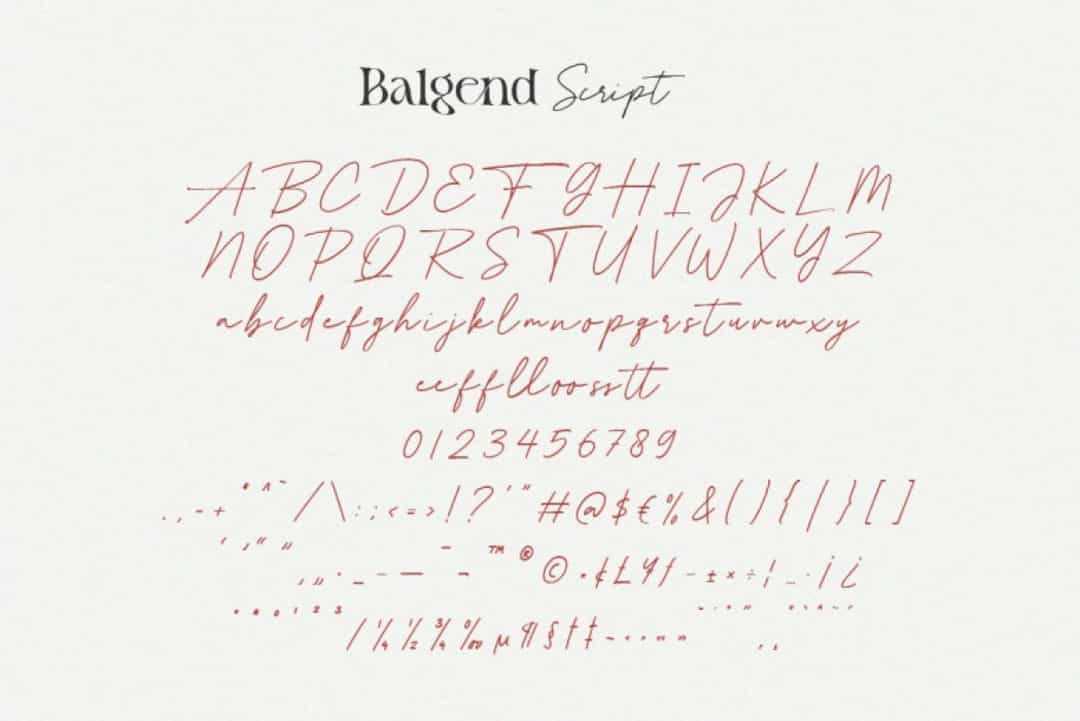 Balgend Script
ABCDEFGHIJKLM
NOPQRSTUVWXYZ
abcdefghijklmnopqrstuvwxy
eefflloosstt
0123456789
. , - + * ^ ~ / \ : ; < = > ! ? ' " # @ $ € % & ( ) { | } [ ]
‘ ’ “ ” ‚ „ · _ – — ¯ ¬ ™ ® © • ¢ £ ¥ ƒ - ± × ÷ ¦ … · ¡ ¿
° ª º 1 2 3 ⁄ ¼ ½ ¾ ‰ µ ¶ § † ‡ ~ ‹ › « »